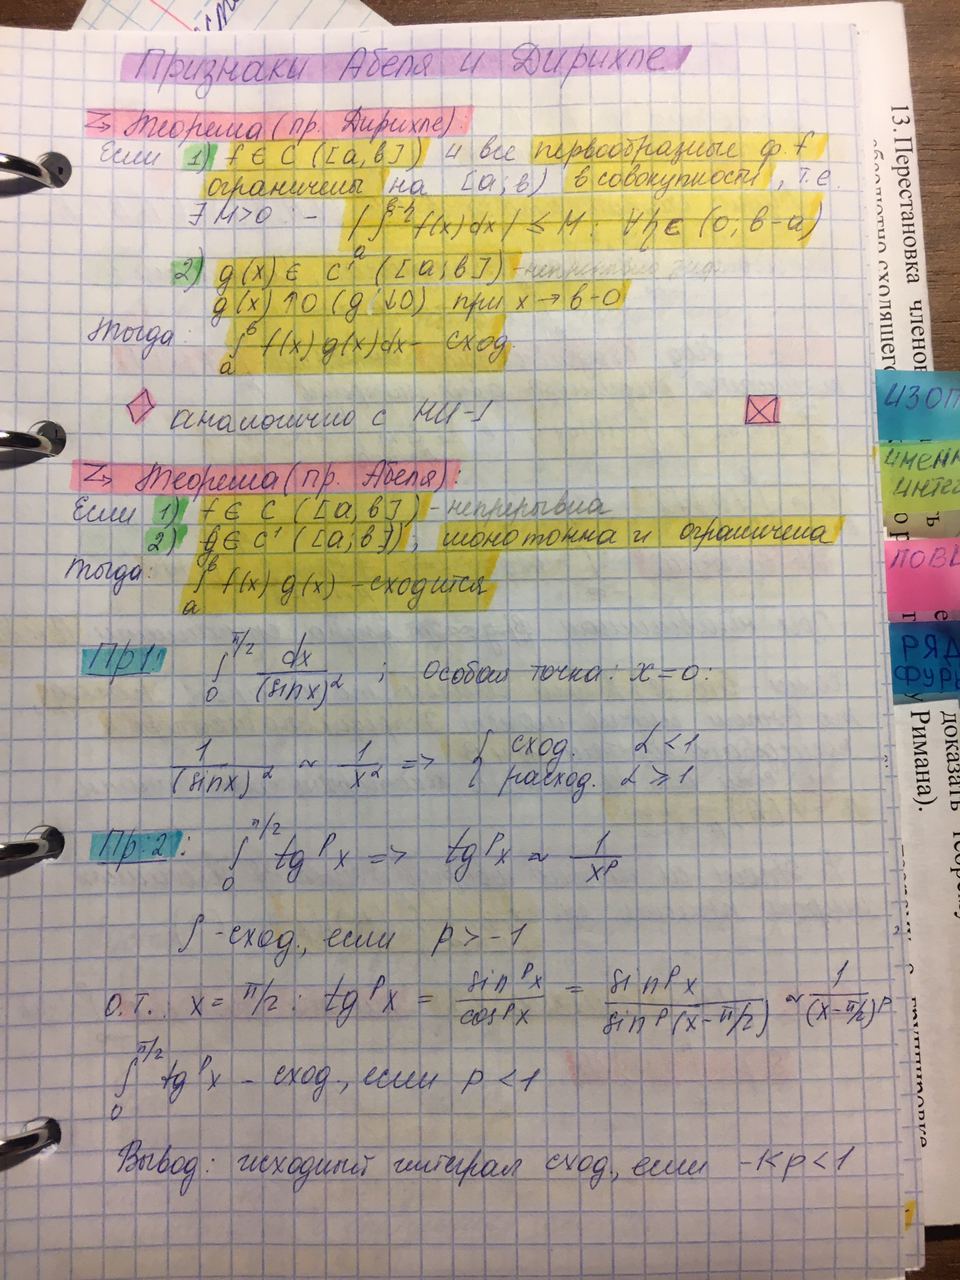 Признаки Абеля и Дирихле
→ Теорема (пр. Дирихле):
Если 1) f ∈ C ([a, в]) и все первообразные ф. f
ограничены на [a; в) в совокупности, т.е.
∃ M>0 : - | ∫ₐ^(в-η) f(x)dx | ≤ M; ∀η ∈ (0; в-a)
2) g(x) ∈ C¹ ([a; в])
g(x) ↑0 (g ↓0) при x → в-0
Тогда: ∫ₐ^в f(x) g(x)dx - сход.
аналогично с НИ-1
→ Теорема (пр. Абеля):
Если 1) f ∈ C ([a, в]) - непрерывна
2) g ∈ C¹ ([a; в]), монотонна и ограничена
Тогда: ∫ₐ^в f(x) g(x) - сходится
Пр1: ∫₀^(π/2) dx/(sinx)^α ; Особая точка: x=0:
1/(sinx)^α ~ 1/x^α => { сход. α < 1
расход. α ⩾ 1
Пр.2: ∫₀^(π/2) tg^p x => tg^p x ~ 1/x^p
∫ - сход., если p > -1
О.Т.: x = π/2 : tg^p x = sin^p x/cos^p x = sin^p x/sin^p (x-π/2) ~ 1/(x-π/2)^p
∫₀^(π/2) tg^p x - сход., если p < 1
Вывод: исходный интеграл сход., если -1<p<1
13. Перестановка
ИЗОП
ИНТЕГ
ПОВ
РЯД
ФУР
доказать теорему
Римана).